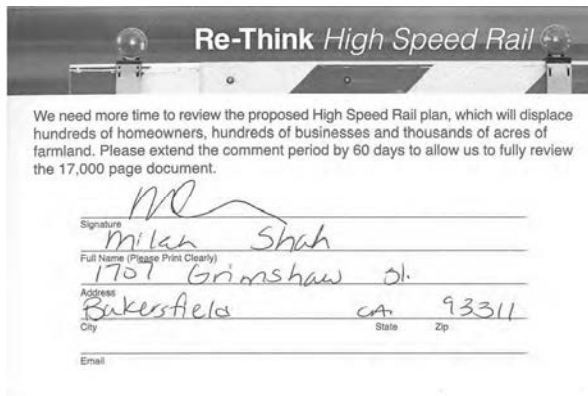 Re-Think High Speed Rail
We need more time to review the proposed High Speed Rail plan, which will displace
hundreds of homeowners, hundreds of businesses and thousands of acres of
farmland. Please extend the comment period by 60 days to allow us to fully review
the 17,000 page document.
Signature
Milan Shah
Full Name (Please Print Clearly)
1707 Grimshaw
Address
Bakersfield CA. 93311
City State Zip
Email